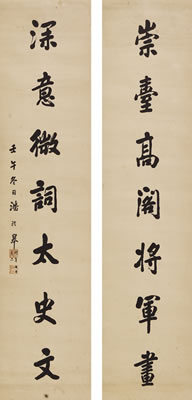 崇臺高閣將軍畫
深意微詞太史文
壬午冬日潘龄皋